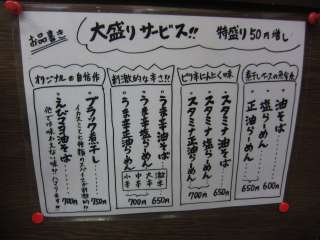 お品書き
大盛りサービス!!
特盛り50円増し
煮干しベースの魚介系
油そば
塩らーめん
正油らーめん
650円
600円
ピリ辛にんにく味
スタミナ油そば
スタミナ塩らーめん
スタミナ正油らーめん
700円
650円
刺激的な辛さ!!
うま辛油そば
うま辛塩らーめん
うま辛正油らーめん
激辛
大辛
中辛
小辛
700円
650円
オリジナルの自信作
ブラック煮干し
えびマヨ油そば
700円